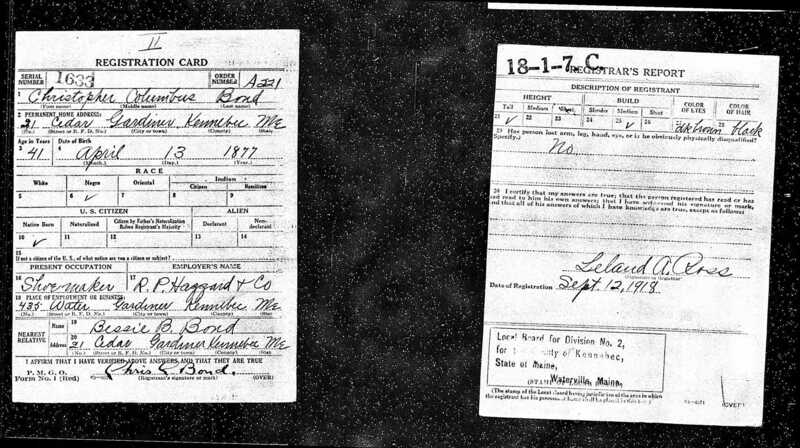 11
REGISTRATION CARD
SERIAL NUMBER 1633 ORDER NUMBER A221
1 Christopher Columbus Bond
(First name) (Middle name) (Last name)
2 PERMANENT HOME ADDRESS:
21 Cedar Gardiner Kennebec Me
(No.) (Street or R. F. D. No.) (City or town) (County) (State)
Age in Years Date of Birth
3 41 4 April 13 1877
(Month.) (Day.) (Year.)
RACE
White Negro Oriental Indian
Citizen Noncitizen
5 6 ✓ 7 8 9
U. S. CITIZEN ALIEN
Native Born Naturalized Citizen by Father's Naturalization Before Registrant's Majority Declarant Non-declarant
10 ✓ 11 12 13 14
15
If not a citizen of the U. S., of what nation are you a citizen or subject?
PRESENT OCCUPATION EMPLOYER'S NAME
16 Shoe maker 17 R. P. Haggard & Co
18 PLACE OF EMPLOYMENT OR BUSINESS:
435 Water Gardiner Kennebec Me
(No.) (Street or R. F. D. No.) (City or town) (County) (State)
NEAREST RELATIVE
Name 19 Bessie B. Bond
Address 20 21 Cedar Gardiner Kennebec Me
(No.) (Street or R. F. D. No.) (City or town) (County) (State)
I AFFIRM THAT I HAVE VERIFIED ABOVE ANSWERS AND THAT THEY ARE TRUE
P. M. G. O.
Form No. 1 (Red) Chris C. Bond
(Registrant's signature or mark) (OVER)
18-1-7. C.
REGISTRAR'S REPORT
DESCRIPTION OF REGISTRANT
HEIGHT BUILD COLOR OF EYES COLOR OF HAIR
Tall Medium Short Slender Medium Stout
21 ✓ 22 23 24 25 ✓ 26 27 dk brown 28 black
29 Has person lost arm, leg, hand, eye, or is he obviously physically disqualified?
(Specify.) No
30 I certify that my answers are true; that the person registered has read or has had read to him his own answers; that I have witnessed his signature or mark, and that all of his answers of which I have knowledge are true, except as follows:
Leland A. Ross
Date of Registration Sept. 12, 1918
Local Board for Division No. 2,
for County of Kennebec,
State of Maine,
Waterville, Maine,
(STAMP OF LOCAL BOARD)
(The stamp of the Local Board having jurisdiction of the area in which
the registrant has his permanent home shall be placed in this box.)
(OVER)